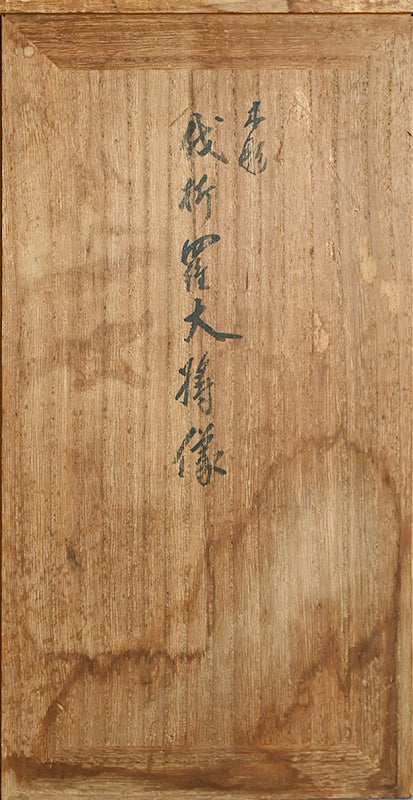 木彫
伐折羅大将像